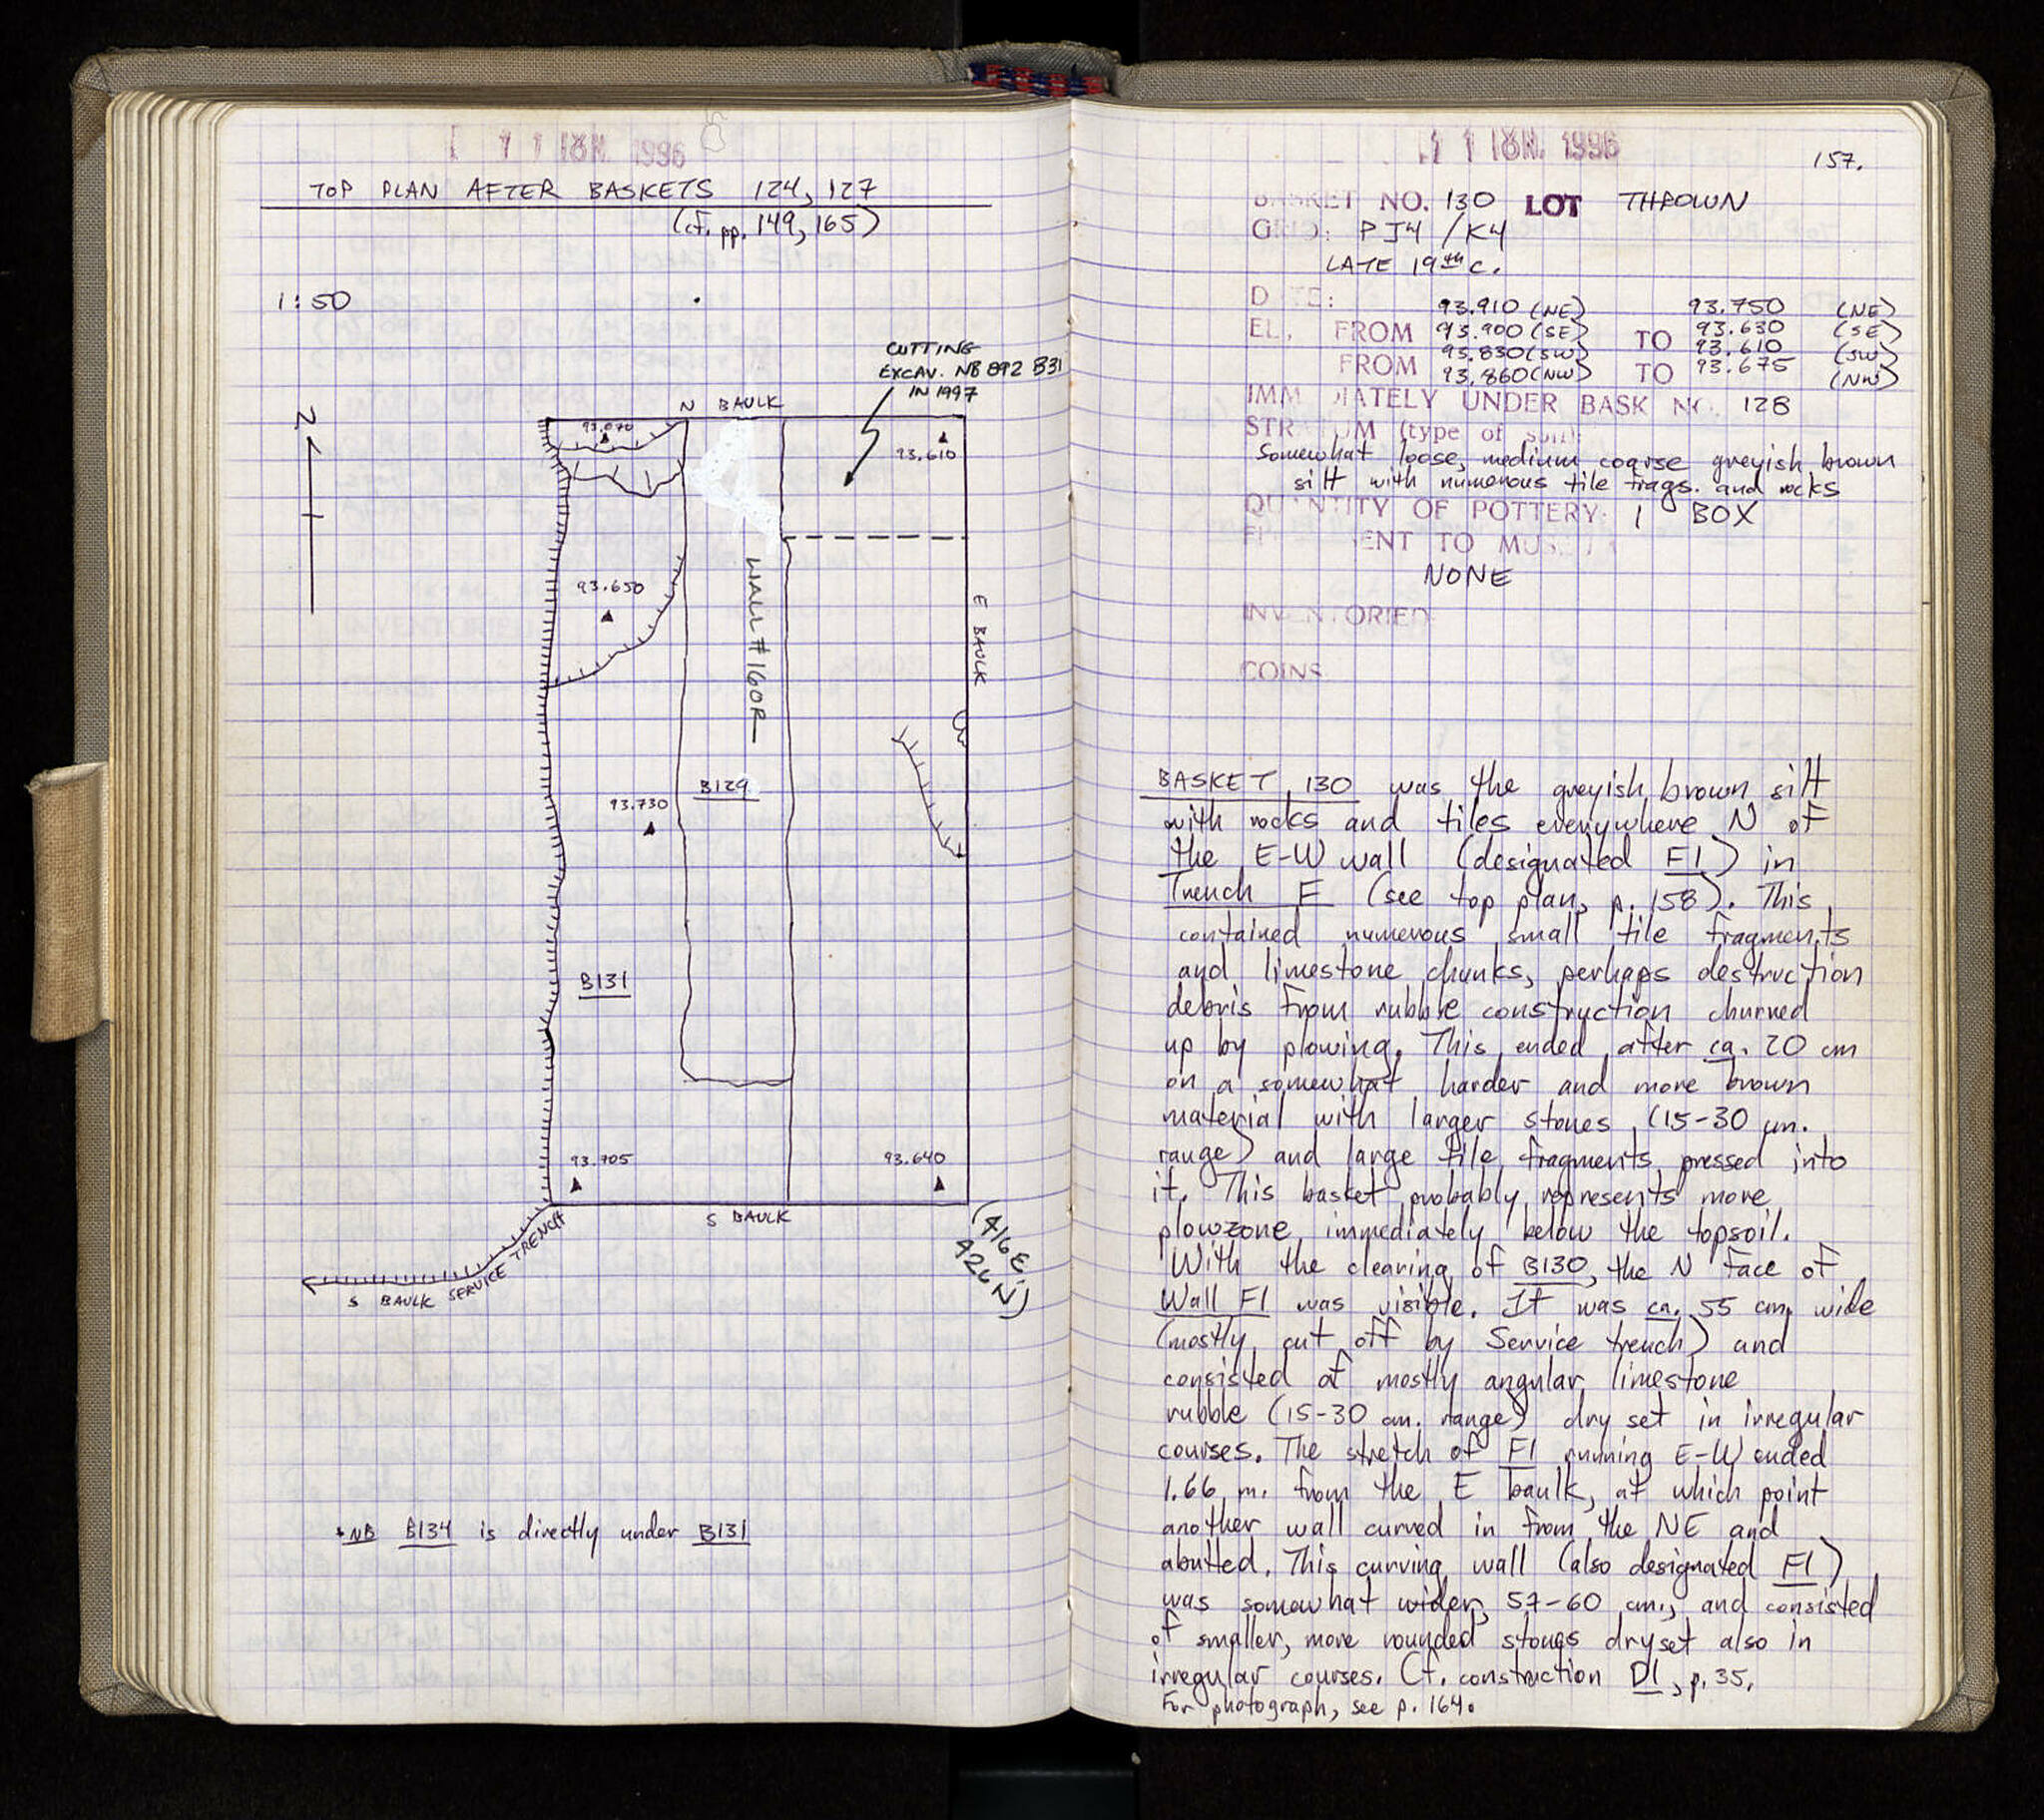 11 ΙΟΝ. 1996
TOP PLAN AFTER BASKETS 124, 127
(cf. pp. 149, 165)
1:50
CUTTING
EXCAV. NB 892 B31
IN 1997
N
N BAULK
93.070
93.610
93.650
WALL #160R
E BAULK
B129
93.730
B131
93.705
93.640
S BAULK
(416 E
426 N)
S BAULK SERVICE TRENCH
*NB B134 is directly under B131
11 ΙΟΝ. 1996
157.
BASKET NO. 130 LOT THROWN
GRID: PJ4/K4
LATE 19th c.
DATE:
93.910 (NE) 93.750 (NE)
EL. FROM 93.900 (SE) TO 93.630 (SE)
93.830 (SW) 93.610 (SW)
FROM 93.860 (NW) TO 93.675 (NW)
IMMEDIATELY UNDER BASK NO. 128
STRATUM (type of soil):
Somewhat loose, medium coarse greyish brown
silt with numerous tile frags. and rocks
QUANTITY OF POTTERY: 1 BOX
ENT TO MUSEUM
NONE
INVENTORIED
COINS
BASKET 130 was the greyish brown silt
with rocks and tiles everywhere N of
the E-W wall (designated F1) in
Trench F (see top plan, p. 158). This
contained numerous small tile fragments
and limestone chunks, perhaps destruction
debris from rubble construction churned
up by plowing. This ended after ca. 20 cm
on a somewhat harder and more brown
material with larger stones (15-30 cm.
range) and large tile fragments pressed into
it. This basket probably represents more
plowzone immediately below the topsoil.
With the clearing of B130, the N face of
Wall F1 was visible. It was ca. 55 cm. wide
(mostly cut off by Service trench) and
consisted of mostly angular limestone
rubble (15-30 cm. range) dry set in irregular
courses. The stretch of F1 running E-W ended
1.66 m. from the E baulk, at which point
another wall curved in from the NE and
abutted. This curving wall (also designated F1)
was somewhat wider, 57-60 cm., and consisted
of smaller, more rounded stones dryset also in
irregular courses. Cf. construction D1, p. 35.
For photograph, see p. 164.